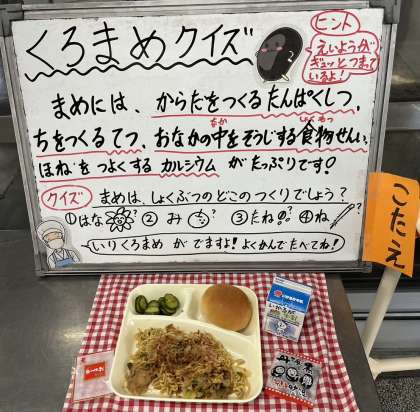 くろまめクイズ
ヒント
えいようが
ギュッとつまって
いるよ!
まめには、からだをつくるたんぱくしつ、
ちをつくるてつ、おなかの中をそうじする食物せんい、
なか
しょくもつ
ほねをつよくするカルシウムがたっぷりです!
クイズ まめは、しょくぶつのどこのつくりでしょう?
①はな? ②み? ③たね? ④ね?
いりくろまめがでますよ!よくかんでたべてね!
こたえ